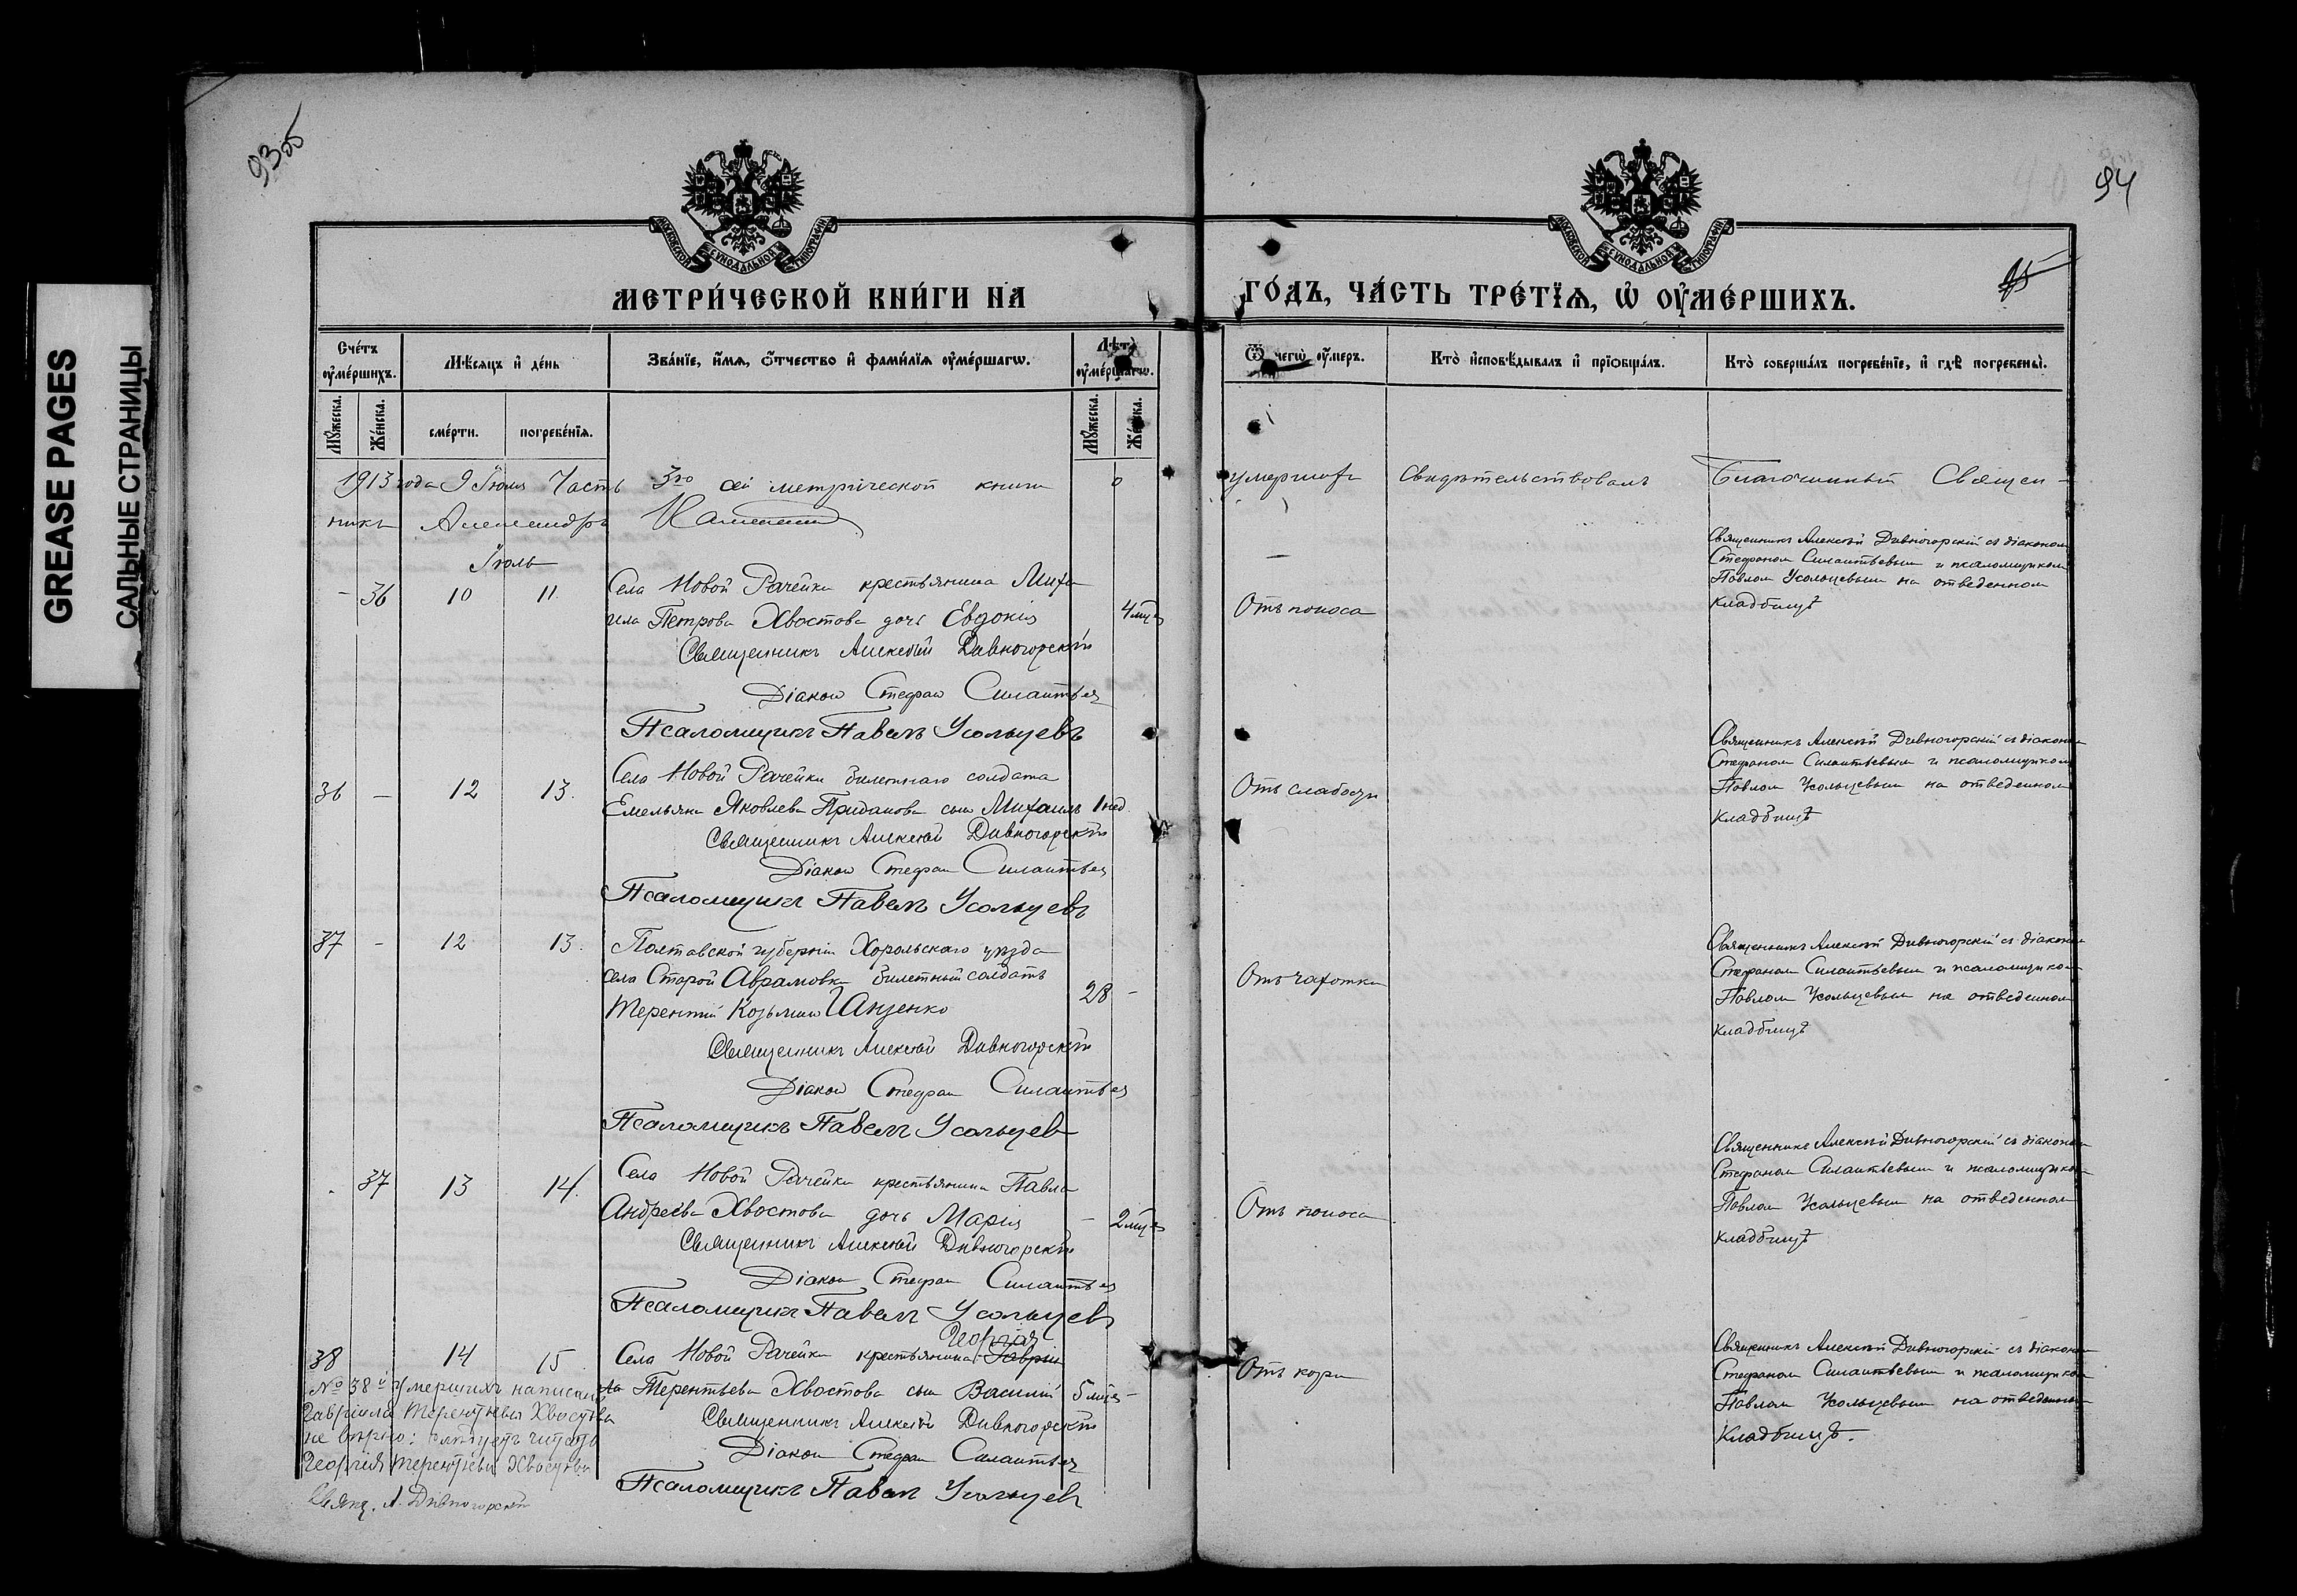 GREASE PAGES
САЛЬНЫЕ СТРАНИЦЫ
93об
94
МОСКОВСКОЙ СѴНОДАЛЬНОЙ ТИПОГРАФІИ
МОСКОВСКОЙ СѴНОДАЛЬНОЙ ТИПОГРАФІИ
МЕТРИ́ЧЕСКОЙ КНИ́ГИ НА
ГО́ДЪ, ЧА́СТЬ ТРЕ́ТЇѦ, Ѡ҆ ОУ҆МЕ́РШИХЪ.
Сче́тъ оу҆ме́ршихъ.
Мѣ́сяцъ и҆ де́нь
Зва́нїе, и҆́мѧ, ѻ҆́тчество и҆ фами́лїѧ оу҆ме́ршагѡ.
Лѣ́та оу҆ме́ршагѡ.
Ѿ чегѡ̀ оу҆́меръ.
Кто̀ и҆сповѣ́дывалъ и҆ прїѡбща́лъ.
Кто̀ соверша́лъ погребе́нїе, и҆ гдѣ̀ погребены̀.
Мꙋ́жеска.
Же́нска.
сме́рти.
погребе́нїѧ.
Мꙋ́жеска.
Же́нска.
1913 года 9 Іюля Часть 3ю сей метрической книги о умершихъ свидѣтельствовалъ Благочинный Священ-
никъ Александръ
Іюль
- 36 10 11 Села Новой Рачейки крестьянина Миха-
ила Петрова Хвостова дочь Евдокія 4 мца Отъ поноса
Священникъ Алексѣй Дивногорскій
Діаконъ Стефанъ Силантьевъ
Псаломщикъ Павелъ Усольцевъ
Священникъ Алексѣй Дивногорскій съ діакономъ
Стефаномъ Силантьевымъ и псаломщикомъ
Павломъ Усольцевымъ на отведенномъ
кладбищѣ
36 - 12 13. Села Новой Рачейки билетнаго солдата
Емельяна Яковлева Приданова сынъ Михаилъ 1 нед Отъ слабости
Священникъ Алексѣй Дивногорскій
Діаконъ Стефанъ Силантьевъ
Псаломщикъ Павелъ Усольцевъ
Священникъ Алексѣй Дивногорскій съ діакономъ
Стефаномъ Силантьевымъ и псаломщикомъ
Павломъ Усольцевымъ на отведенномъ
кладбищѣ
37 - 12 13. Полтавской губерніи Хорольскаго уѣзда
села Старой Аврамовки билетный солдатъ
Терентій Козьминъ 28 - Отъ чахотки
Священникъ Алексѣй Дивногорскій
Діаконъ Стефанъ Силантьевъ
Псаломщикъ Павелъ Усольцевъ
Священникъ Алексѣй Дивногорскій съ діакономъ
Стефаномъ Силантьевымъ и псаломщикомъ
Павломъ Усольцевымъ на отведенномъ
кладбищѣ
- 37 13 14. Села Новой Рачейки крестьянина Павла
Андреева Хвостова дочь Марія - 2 мца Отъ поноса
Священникъ Алексѣй Дивногорскій
Діаконъ Стефанъ Силантьевъ
Псаломщикъ Павелъ Усольцевъ
Священникъ Алексѣй Дивногорскій съ діакономъ
Стефаномъ Силантьевымъ и псаломщикомъ
Павломъ Усольцевымъ на отведенномъ
кладбищѣ
Георгія
38 14 15 Села Новой Рачейки крестьянина Гаврі-
ла Терентьева Хвостова сынъ Василій 5 мца - Отъ кори
Священникъ Алексѣй Дивногорскій
Діаконъ Стефанъ Силантьевъ
Псаломщикъ Павелъ Усольцевъ
Священникъ Алексѣй Дивногорскій съ діакономъ
Стефаномъ Силантьевымъ и псаломщикомъ
Павломъ Усольцевымъ на отведенномъ
кладбищѣ.
№ 38й умершихъ написано
Гавріила Терентьева Хвостова
не вѣрно: слѣдуетъ читать
Георгія Терентьева Хвостова
Свящ. А. Дивногорскій